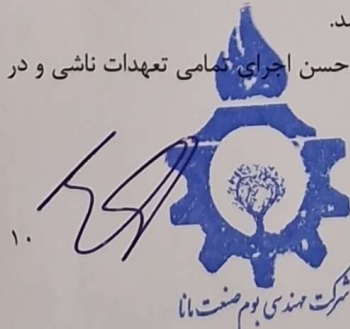 د.
حسن اجرای تمامی تعهدات ناشی و در
۱۰
شرکت مهندسی بوم صنعت مانا